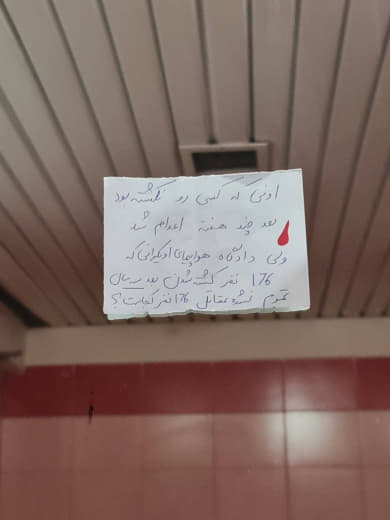 اونی که کسی رو نکشته بود
بعد چند هفته اعدام شد
ولی دادگاه هواپیمای اوکراینی که
176 نفر کشته شدن بعد سه سال
تموم نشده مقاتل 176 نفر کجاست؟